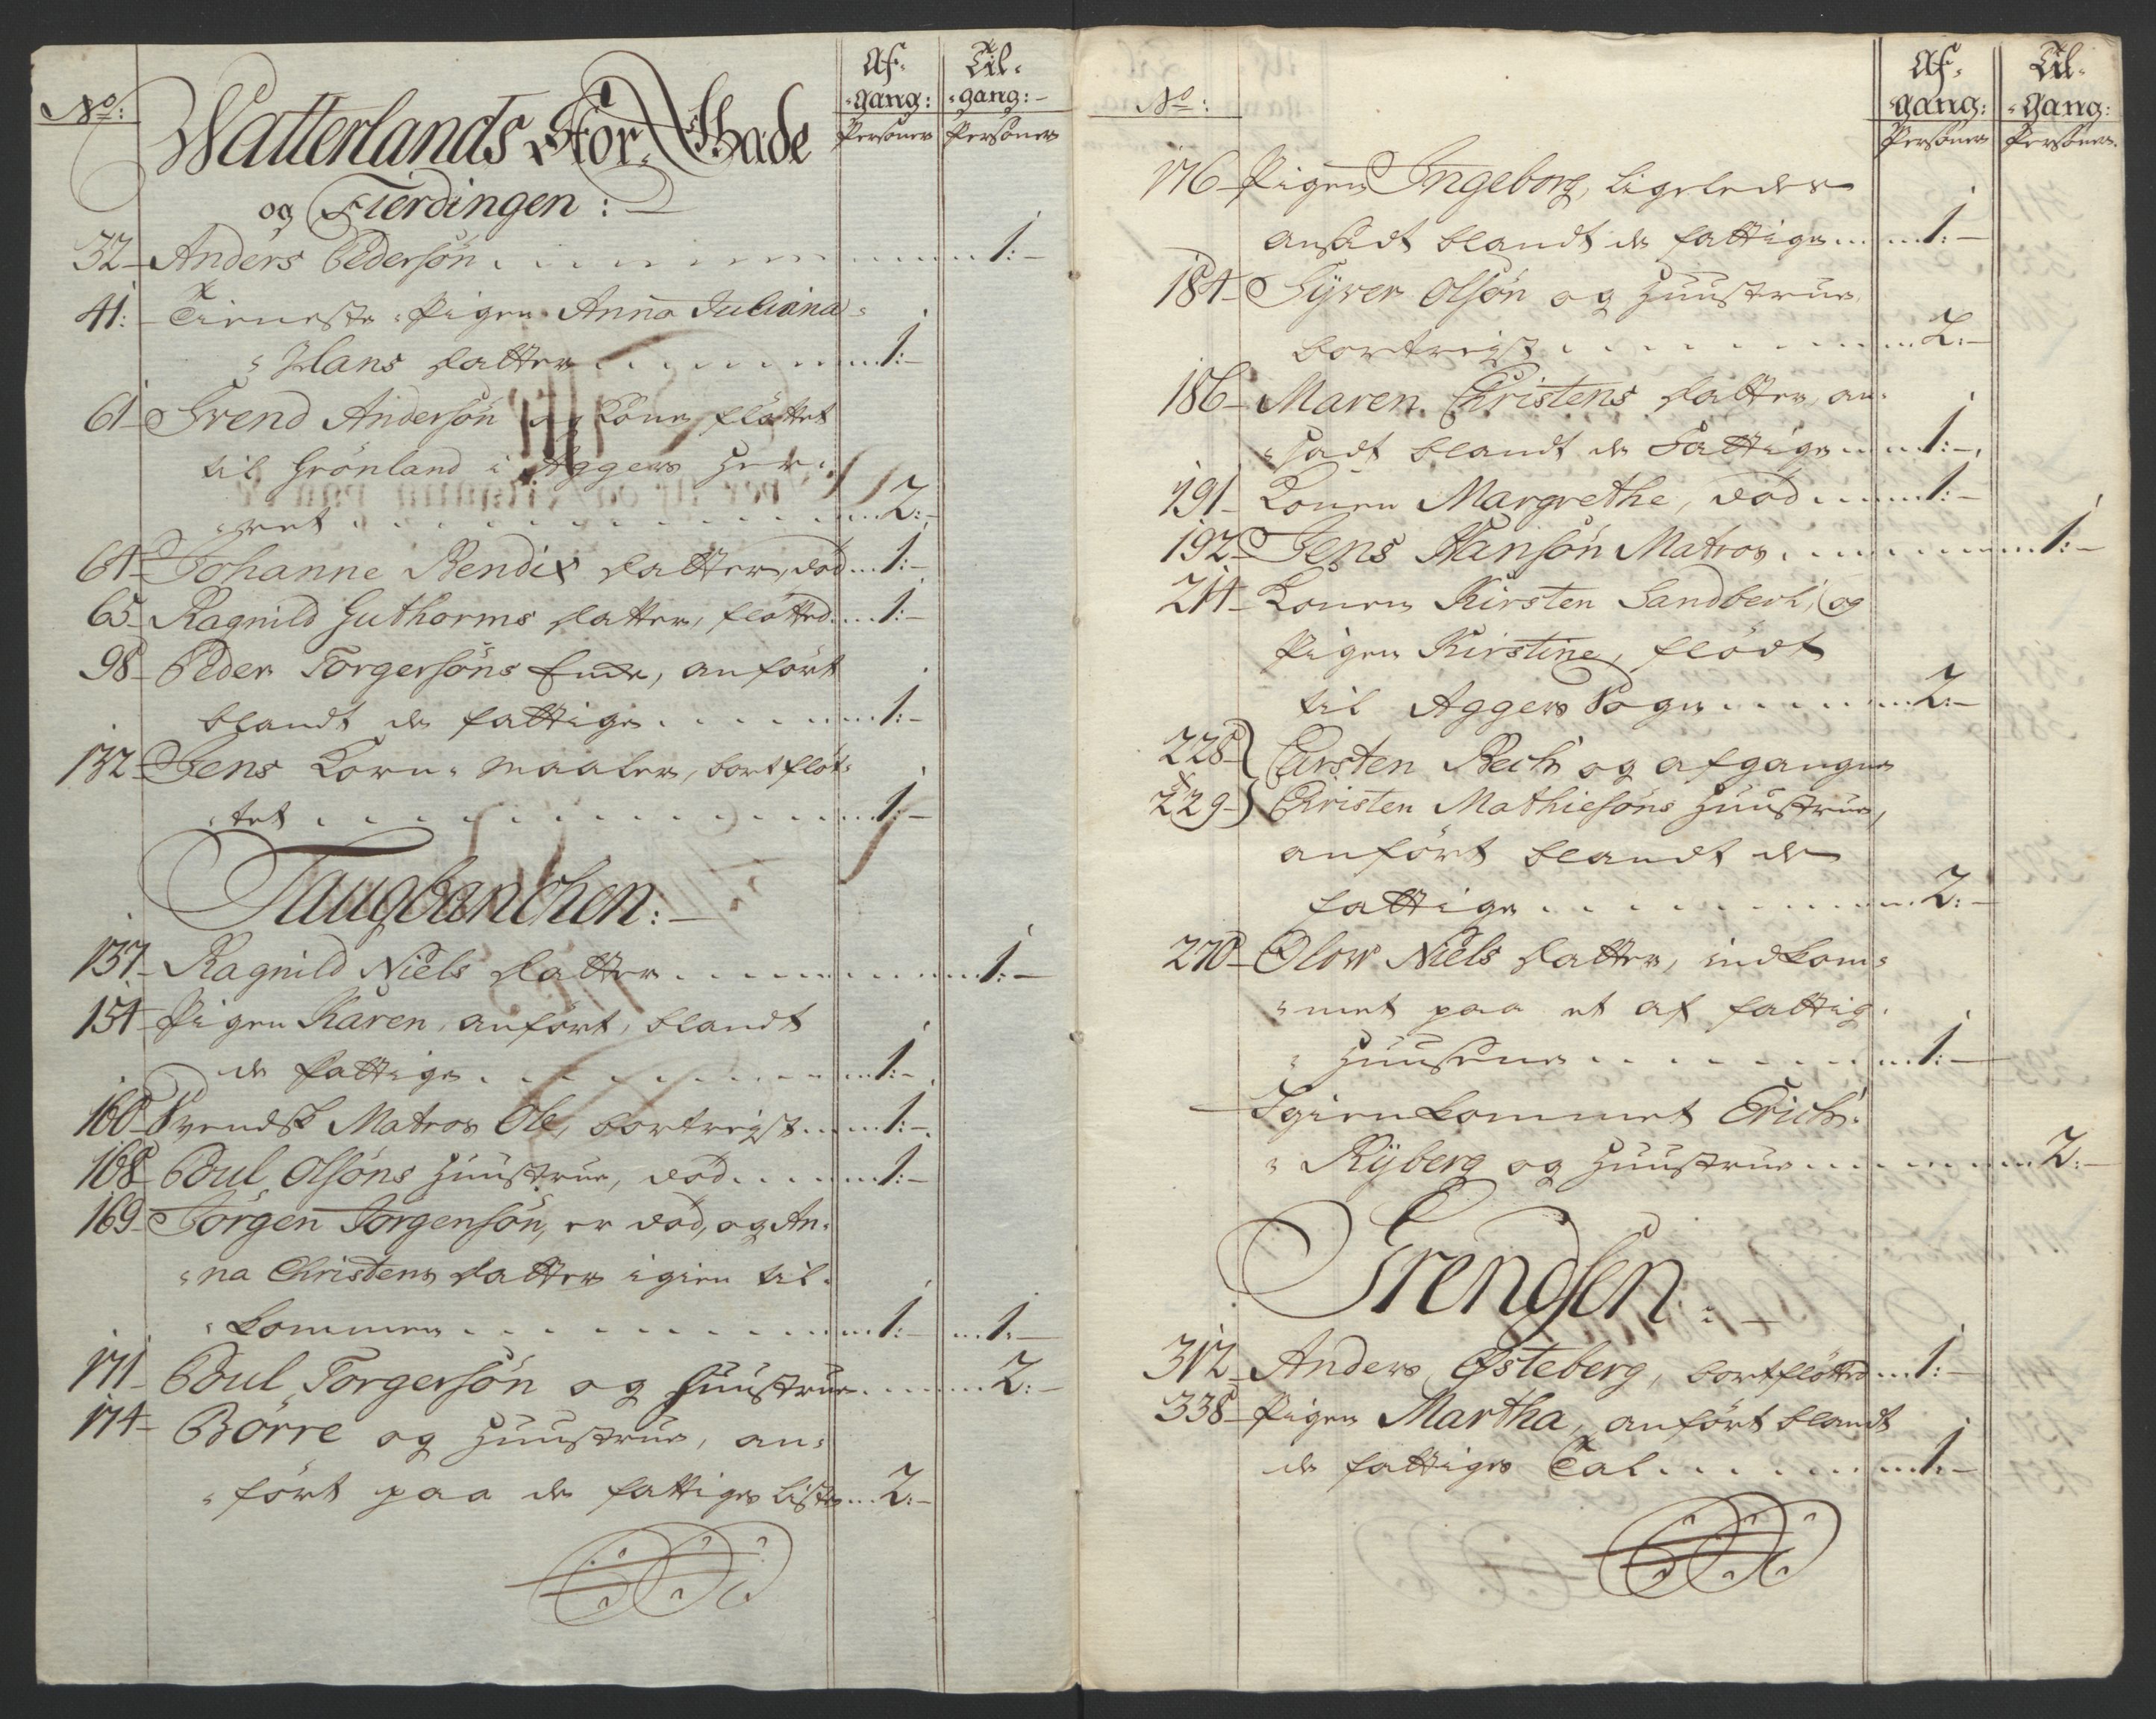 No:
Af-
-gang:
Personer
Til-
-gang:
Personer
Watterlands Stor-Gade
og Fierdingen:
32 Anders Pedersøn . . . 1:
41: Tieneste-Pigen Anna Juliana
Hans datter . . . 1:
61 Svend Andersøn og Kone fløttet
til Grönland i Aggers Her-
ret . . . 2:
64 Johanne Bendix datter, død . . . 1:
65 Ragnild Guthorms datter, fløtted . . . 1:
98 Peder Torgersøns Enke, anført
blandt de fattige . . . 1:
132 Jens Korn-maaler, bortfløt-
tet . . . 1:
Taugbanchen:
137 Ragnild Niels datter . . . 1:
154 Pigen Karen, anført, blandt
de fattige . . . 1:
160 Svendsk Matros Ole, bortreyst . . . 1:
168 Poul Olsøns Huustrue, død . . . 1:
169 Jörgen Jorgensøn, er død, og An-
na Christens datter igien til-
kommen . . . 1: . . . 1:
171 Poul Torgersøn og Huustrue . . . 2:
174 Börre og Huustrue, an-
ført paa de fattiges Liste . . . 2:
No:
Af-
gang:
Personer
Til-
-gang:
Personer
176 Pigen Ingeborg, ligeledes
ansadt blandt de fattige . . . 1:
184 Syver Olsøn og Huustrue
bortreyst . . . 2:
186 Maren Christens datter, an-
sadt blandt de Fattige . . . 1:
191 Konen Margrethe, død . . . 1:
192 Jens Hansøn Matros . . . 1:
214 Konen Kirsten Sandberk, og
Pigen Kirstine, flödt
til Aggers Sogn . . . 2:
228 Carsten Bech og afgangne
229 Christen Mathiesøns Huustrue,
anført blandt de
fattige . . . 2:
270 Olow Niels datter, indkom-
met paa et af fattig-
Huusene . . . 1:
Igienkommet Erich
Ryberg og Huustrue . . . 2:
Grendsen:
312 Anders Østeberg, bortfløtted . . . 1:
338 Pigen Martha, anført blandt
de fattiges Tal . . . 1: